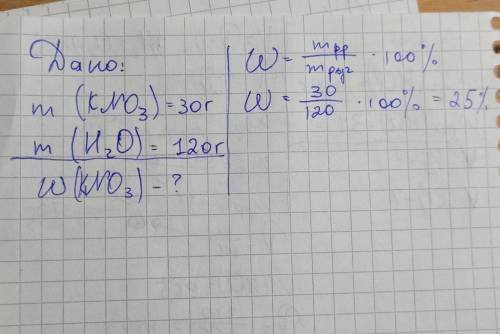 Дано:
m (KNO₃) = 30г
m (H₂O) = 120г
W (KNO₃) - ?
W = mрр / mр-рг · 100%
W = 30 / 120 · 100% = 25%